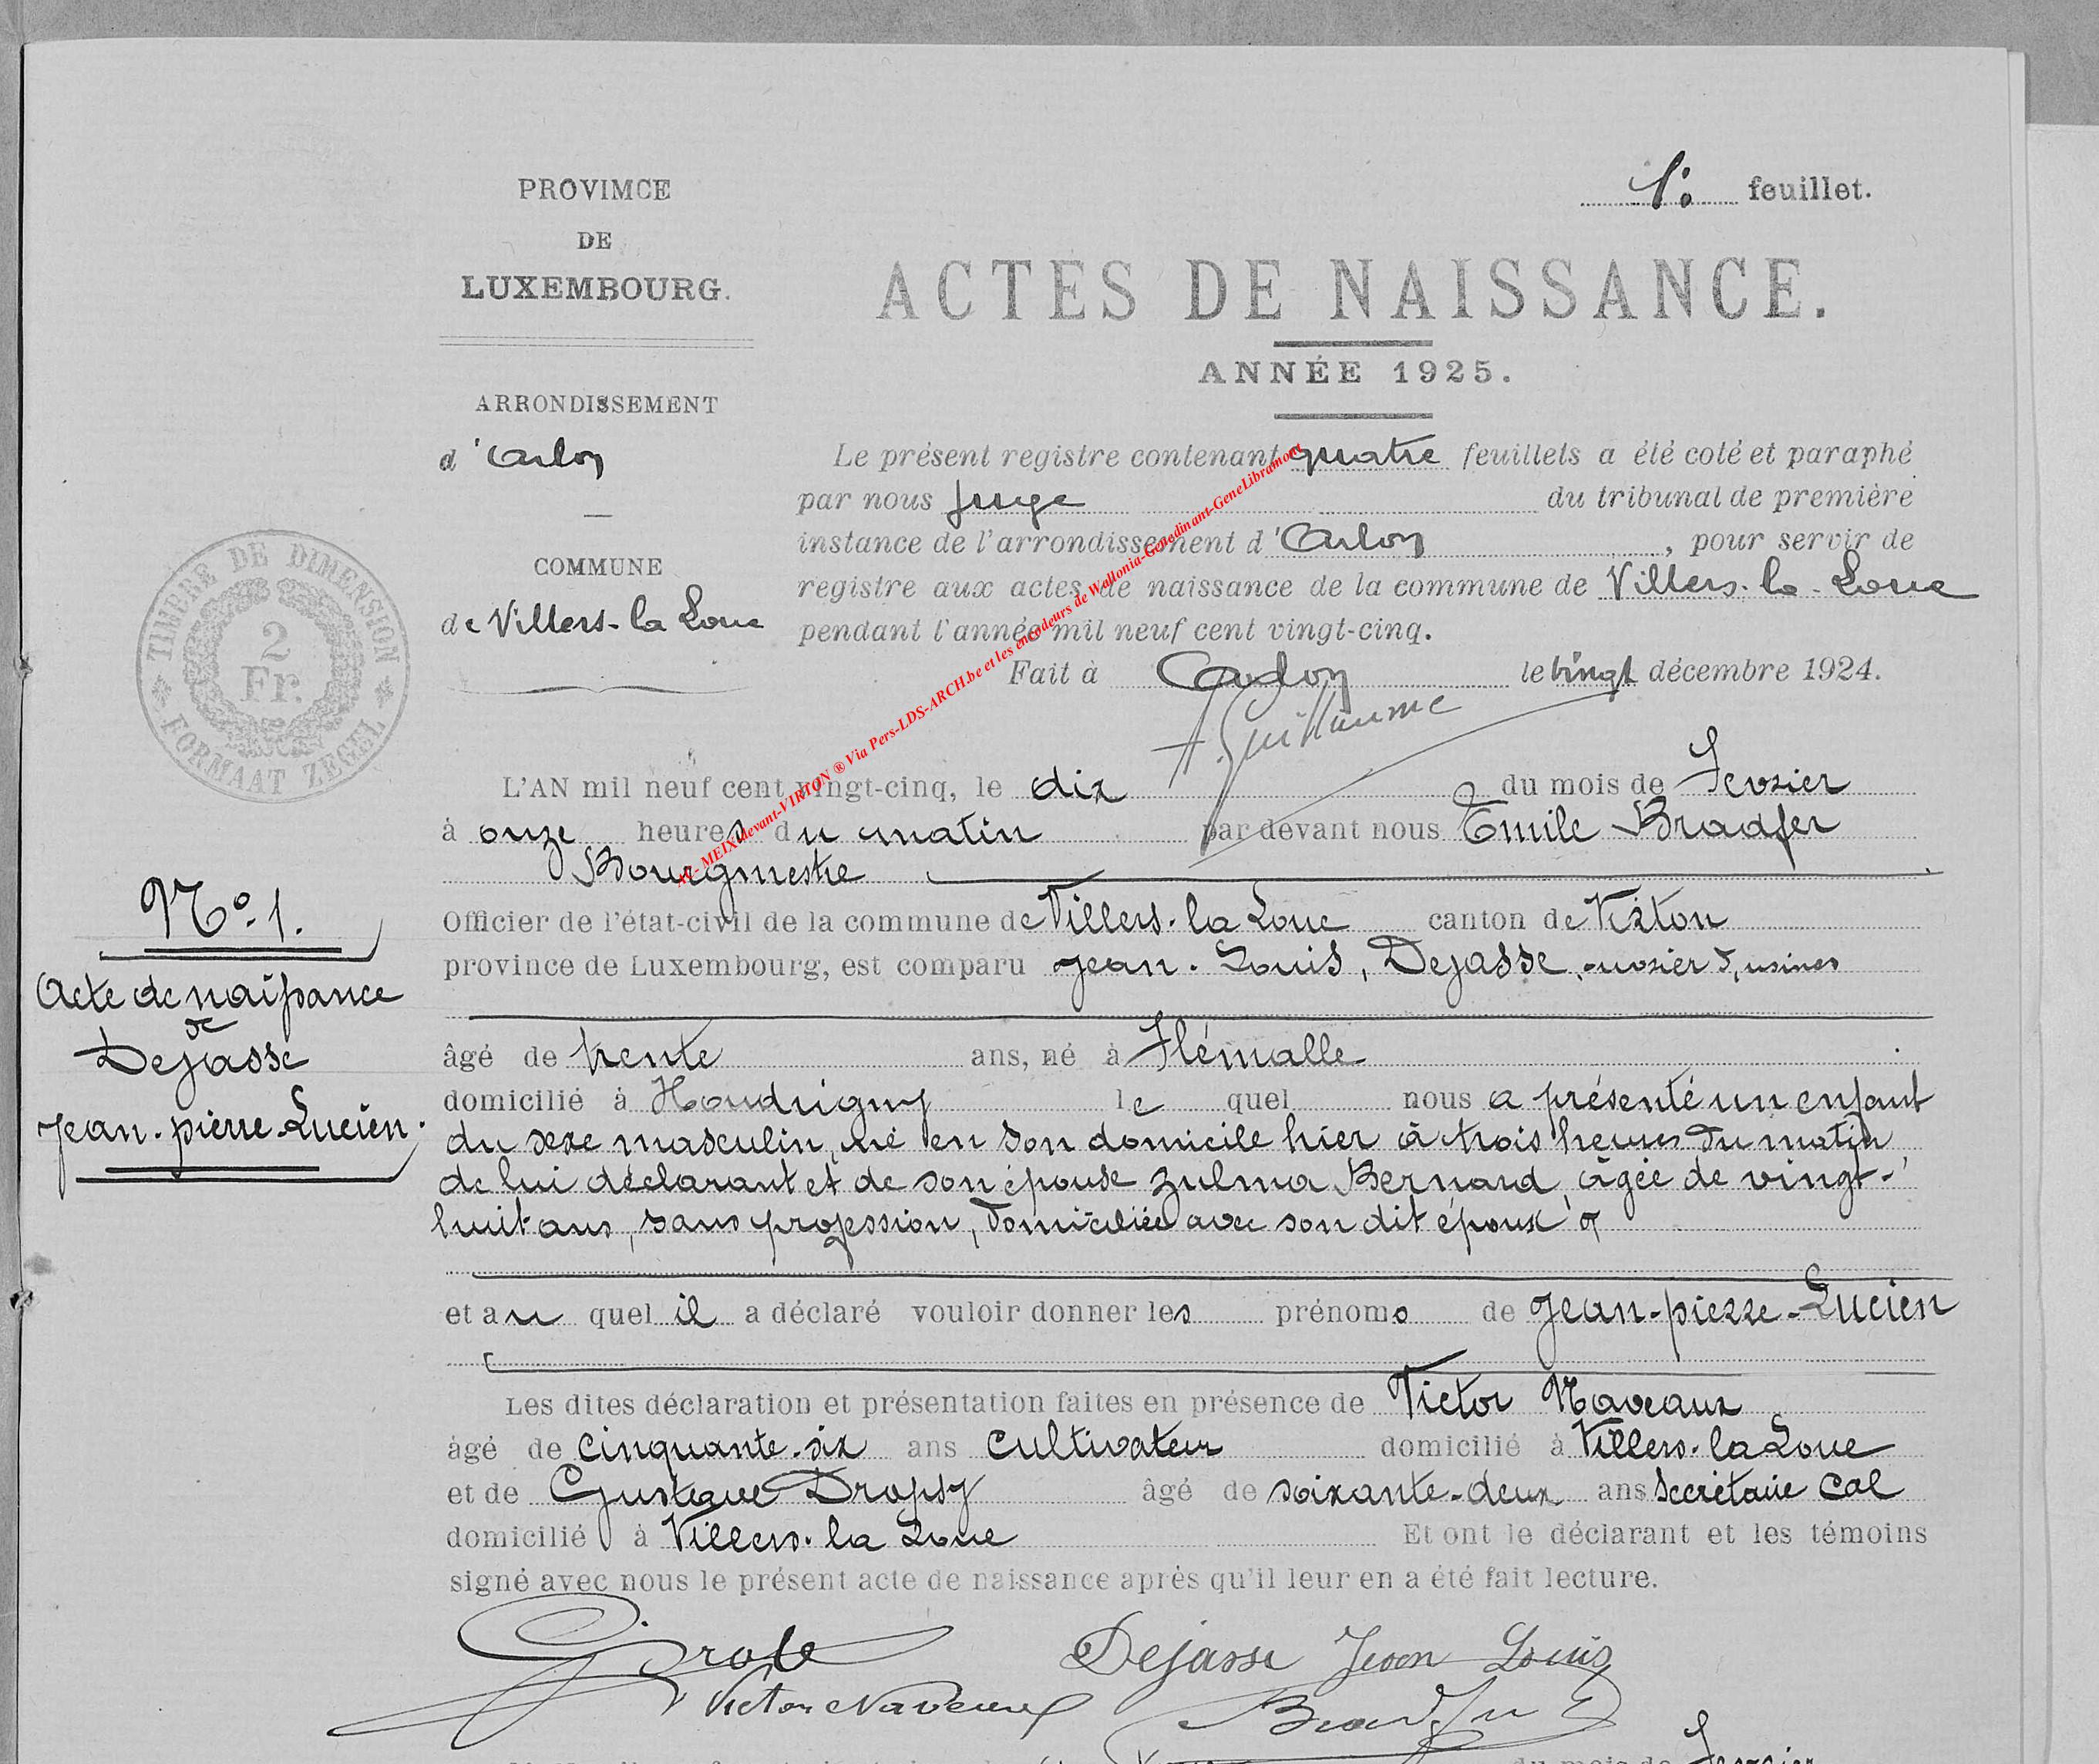 1º feuillet.
PROVIMCE
DE
LUXEMBOURG.
ARRONDISSEMENT
d'Arlon
COMMUNE
de Villers-la Loue
TIMBRE DE DIMENSION
2
Fr.
FORMAAT ZEGEL
ACTES DE NAISSANCE.
ANNÉE 1925.
Le présent registre contenant quatre feuillets a été coté et paraphé
par nous Juge du tribunal de première
instance de l'arrondissement d'Arlon, pour servir de
registre aux actes de naissance de la commune de Villers-la-Loue
pendant l'année mil neuf cent vingt-cinq.
Fait à Arlon le vingt décembre 1924.
A. Guillaume
AC-MEIX-devant-VIRTON ® Via Pers-LDS-ARCH.be et les encodeurs de Wallonia-Genedinant-GeneLibramont
L'AN mil neuf cent vingt-cinq, le dix du mois de Fevrier
à onze heures du matin par devant nous Emile Bradfer
Bourgmestre
Officier de l'état-civil de la commune de Villers-la Loue canton de Virton
province de Luxembourg, est comparu Jean-Louis, Dejasse, ouvrier d'usines
âgé de trente ans, né à Flémalle
domicilié à Houdrigny le quel nous a présenté un enfant
du sexe masculin, né en son domicile hier à trois heures du matin
de lui déclarant et de son épouse Zulma Bernard, âgée de vingt-
huit ans, sans profession, domiciliée avec son dit époux
et au quel il a déclaré vouloir donner les prénoms de Jean-pierre-Lucien
Les dites déclaration et présentation faites en présence de Victor Naveaux
âgé de cinquante-six ans cultivateur domicilié à Villers-la Loue
et de Gustave Dropsy âgé de soixante-deux ans Secrétaire Cal
domicilié à Villers-la Loue Et ont le déclarant et les témoins
signé avec nous le présent acte de naissance après qu'il leur en a été fait lecture.
Dejasse Jean Louis
Victor Naveaux
Nº 1.
Acte de naissance
de
Dejasse
Jean-pierre-Lucien.
du mois de Fevrier